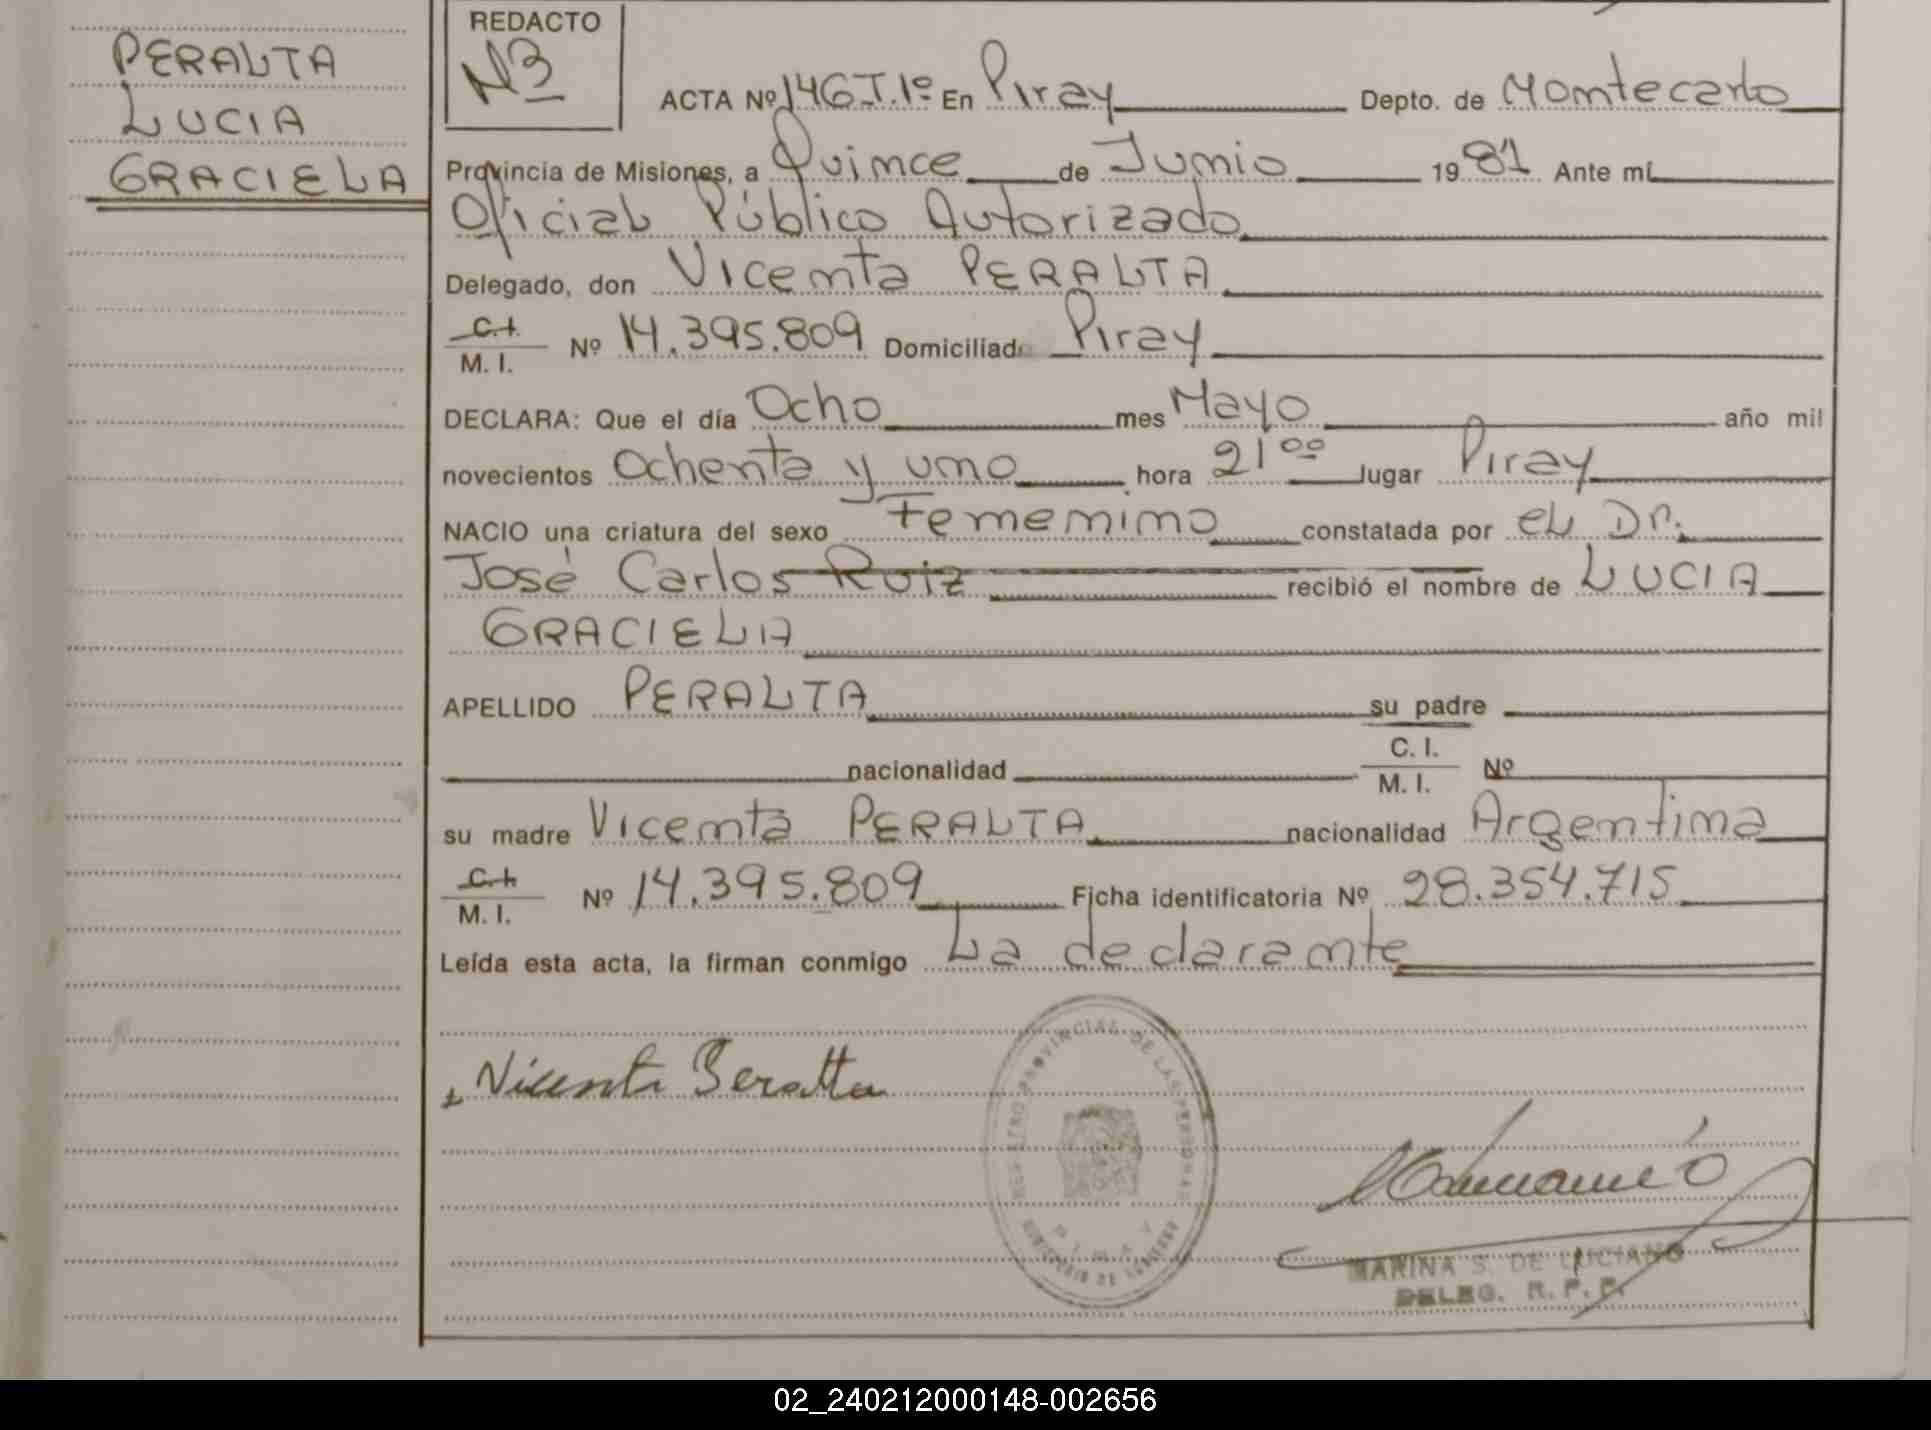 PERALTA
LUCIA
GRACIELA
REDACTO
N3
ACTA Nº 146 T.1º En Piray Depto. de Montecarlo
Provincia de Misiones, a Quince de Junio 1981 Ante mí
Oficial Público Autorizado
Delegado, don Vicenta PERALTA
C.I.
M. I. Nº 14.395.809 Domiciliad Piray
DECLARA: Que el día Ocho mes Mayo año mil
novecientos Ochenta y uno hora 21 00 lugar Piray
NACIO una criatura del sexo Femenino constatada por el Dr.
José Carlos Ruiz recibió el nombre de LUCIA
GRACIELA
APELLIDO PERALTA su padre
nacionalidad C. I.
M. I. Nº
su madre Vicenta PERALTA nacionalidad Argentina
C.I.
M. I. Nº 14.395.809 Ficha identificatoria Nº 28.354.715
Leída esta acta, la firman conmigo La declarante
REGISTRO PROVINCIAL DE LAS PERSONAS
PIRAY
MINISTERIO DE GOBIERNO
Vicenta Peralta
MARINA S. DE LUCIANO
DELEG. R. P. P.
02_240212000148-002656